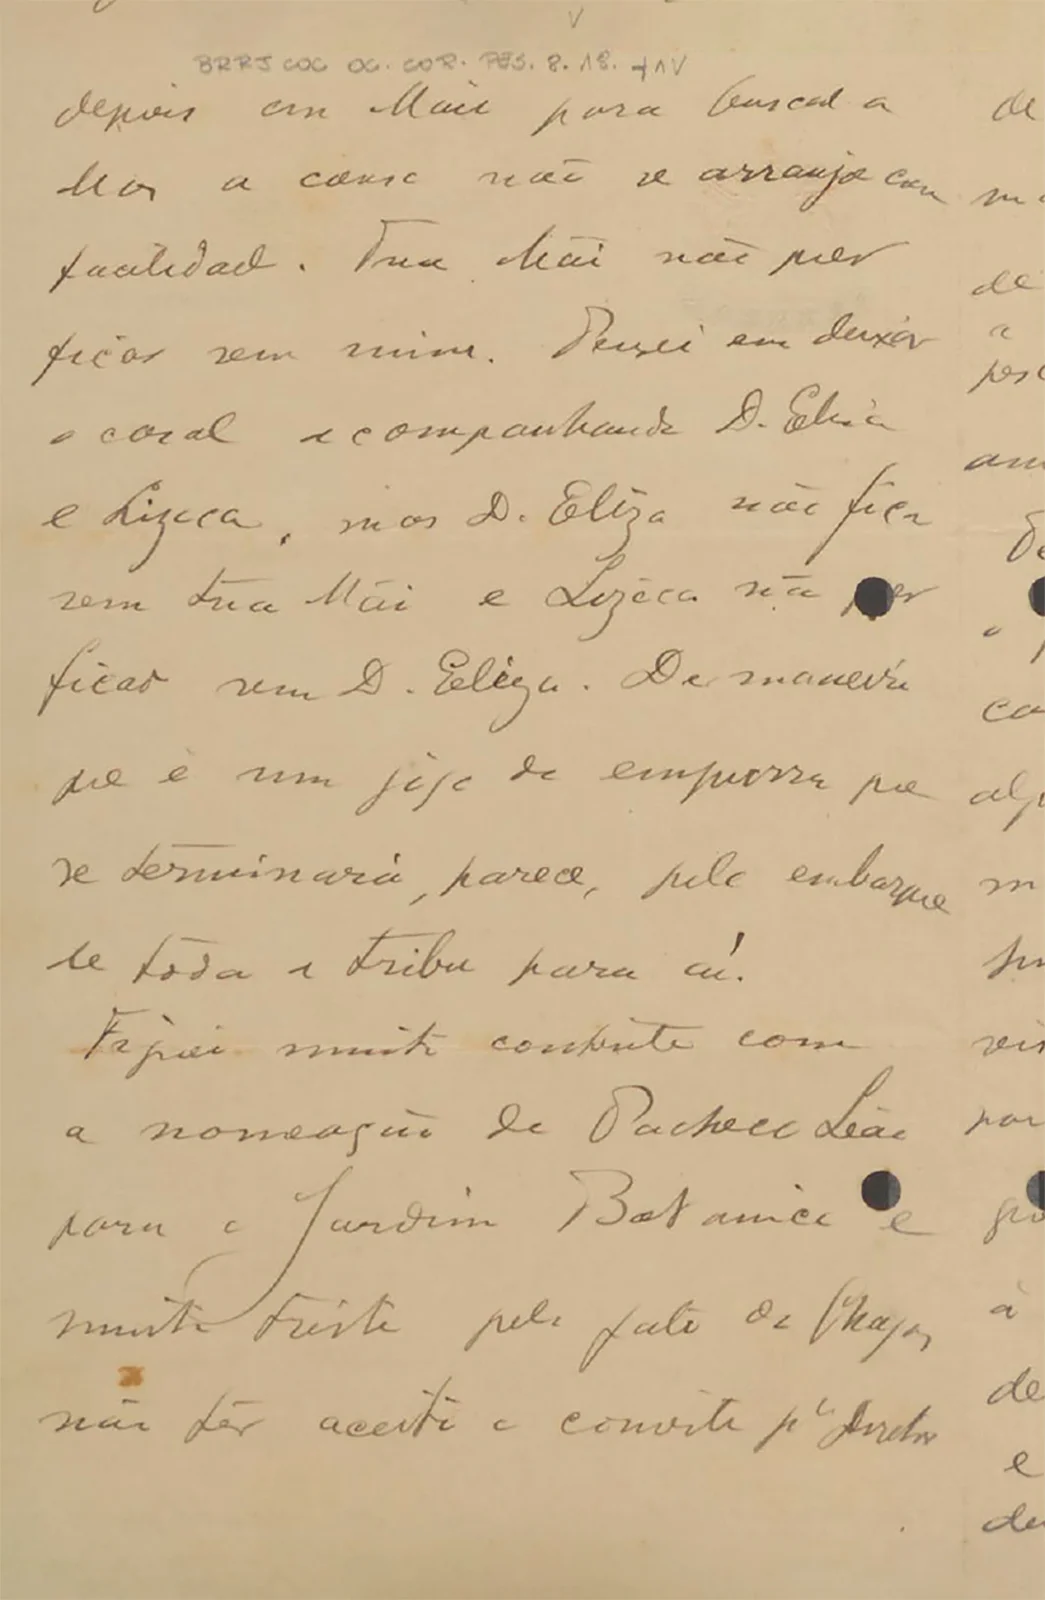 V
BRRJ COC OC. COR. PES. 8. 18. f1V
depois em Maio para buscal a
Mas a cousa não se arranja com
facilidade. Tua Mãi não quer
ficar sem mim. Pensei em deixar
o casal acompanhando D. Eliza
e Lizéca, mas D. Eliza não fica
sem tua Mãi e Lizéca não quer
ficar sem D. Eliza. De maneira
que é um jogo de empurra que
se terminará, parece, pelo embarque
de toda a tribu para aí.
Fiquei muito contente com
a nomeação do Pacheco Leão
para o Jardim Botanico e
muito triste pelo fato do Chagas
não têr aceito o convite pª Diretor
de
de
a
o
à
de
e